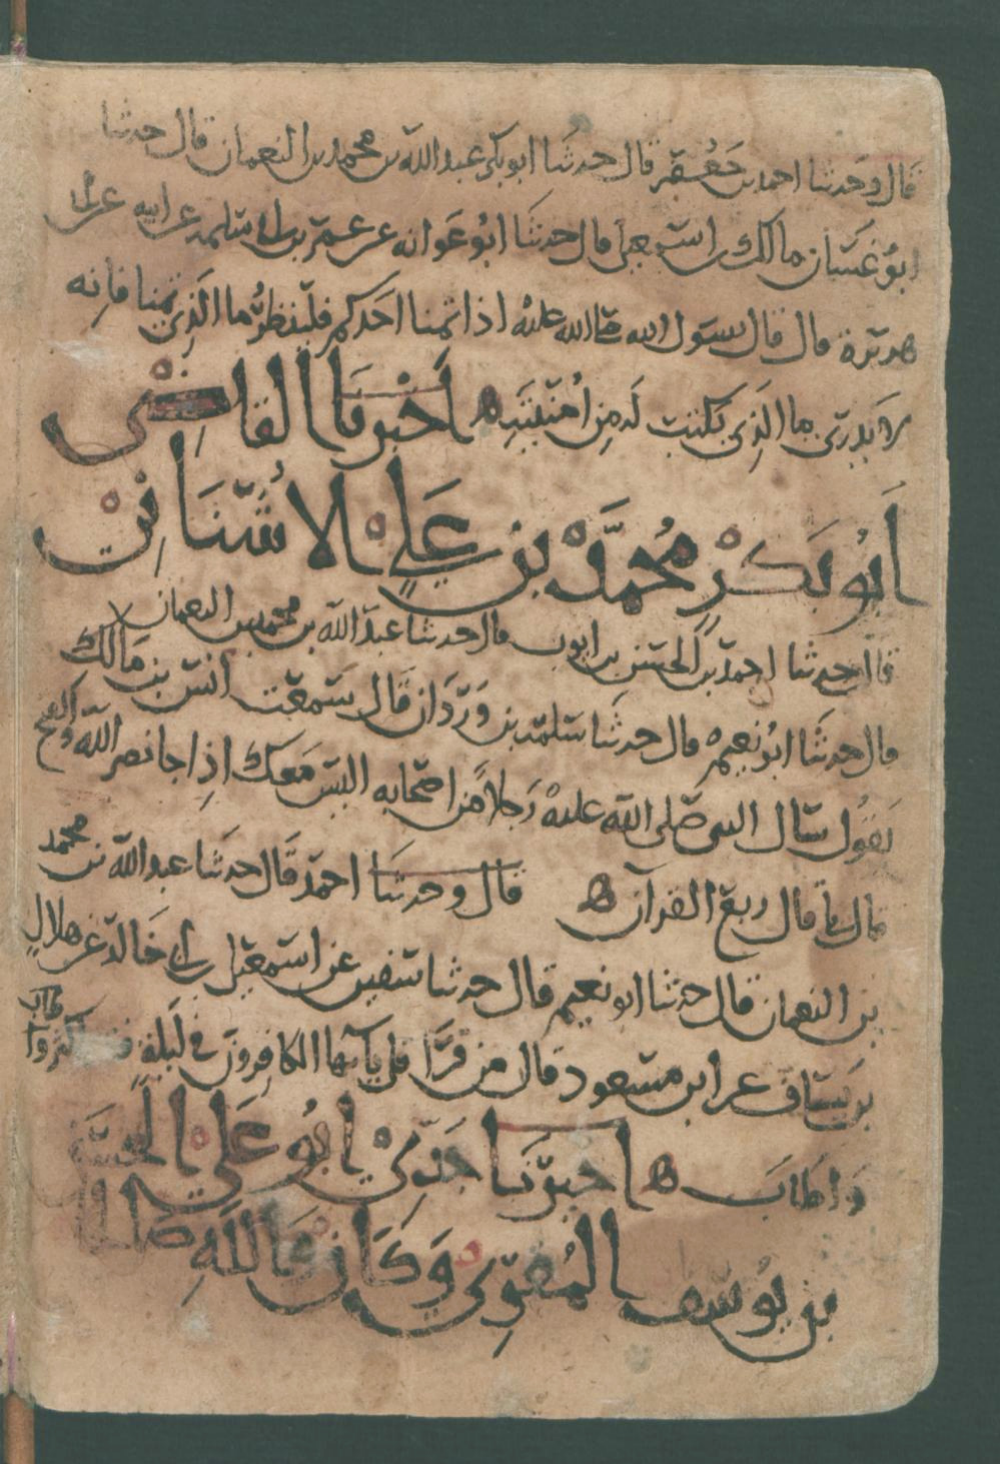 قال وحدثنا احمد بن جعفر قال حدثنا ابو بكر عبد الله بن محمد بن النعمان قال حدثنا
ابو غسان مالك بن اسمعيل قال حدثنا ابو عوانه عن عمر بن ابي سلمه عن ابيه عن ابي
هريرة قال قال رسول الله صلى الله عليه اذا تمنا احدكم فلينظر ما الذي تمنا فانه
لا يدري ما الذي يكتب له من امنيته ه اخبرنا القاضي
ابو بكر محمد بن علي الاشناني
قال حدثنا احمد بن الحسن بن ايوب قال حدثنا عبد الله بن محمد بن النعمان
قال حدثنا ابو نعيم قال حدثنا سلمة بن وردان قال سمعت انس بن مالك
يقول سال النبي صلى الله عليه رجلا من اصحابه اليس معك اذا جا نصر الله والفتح
قال قال ربع القرآن ه قال وحدثنا احمد قال حدثنا عبد الله بن محمد
بن النعمان قال حدثنا ابو نعيم قال حدثنا سفين عن اسمعيل بن ابي خالد عن هلال
بن يساف عن ابن مسعود قال من قرا قل يايها الكافرون في ليلة فقد اكثر
واطاب ه اخبرنا جدي ابو علي الحسن
بن يوسف المقري وكان والله صالحا